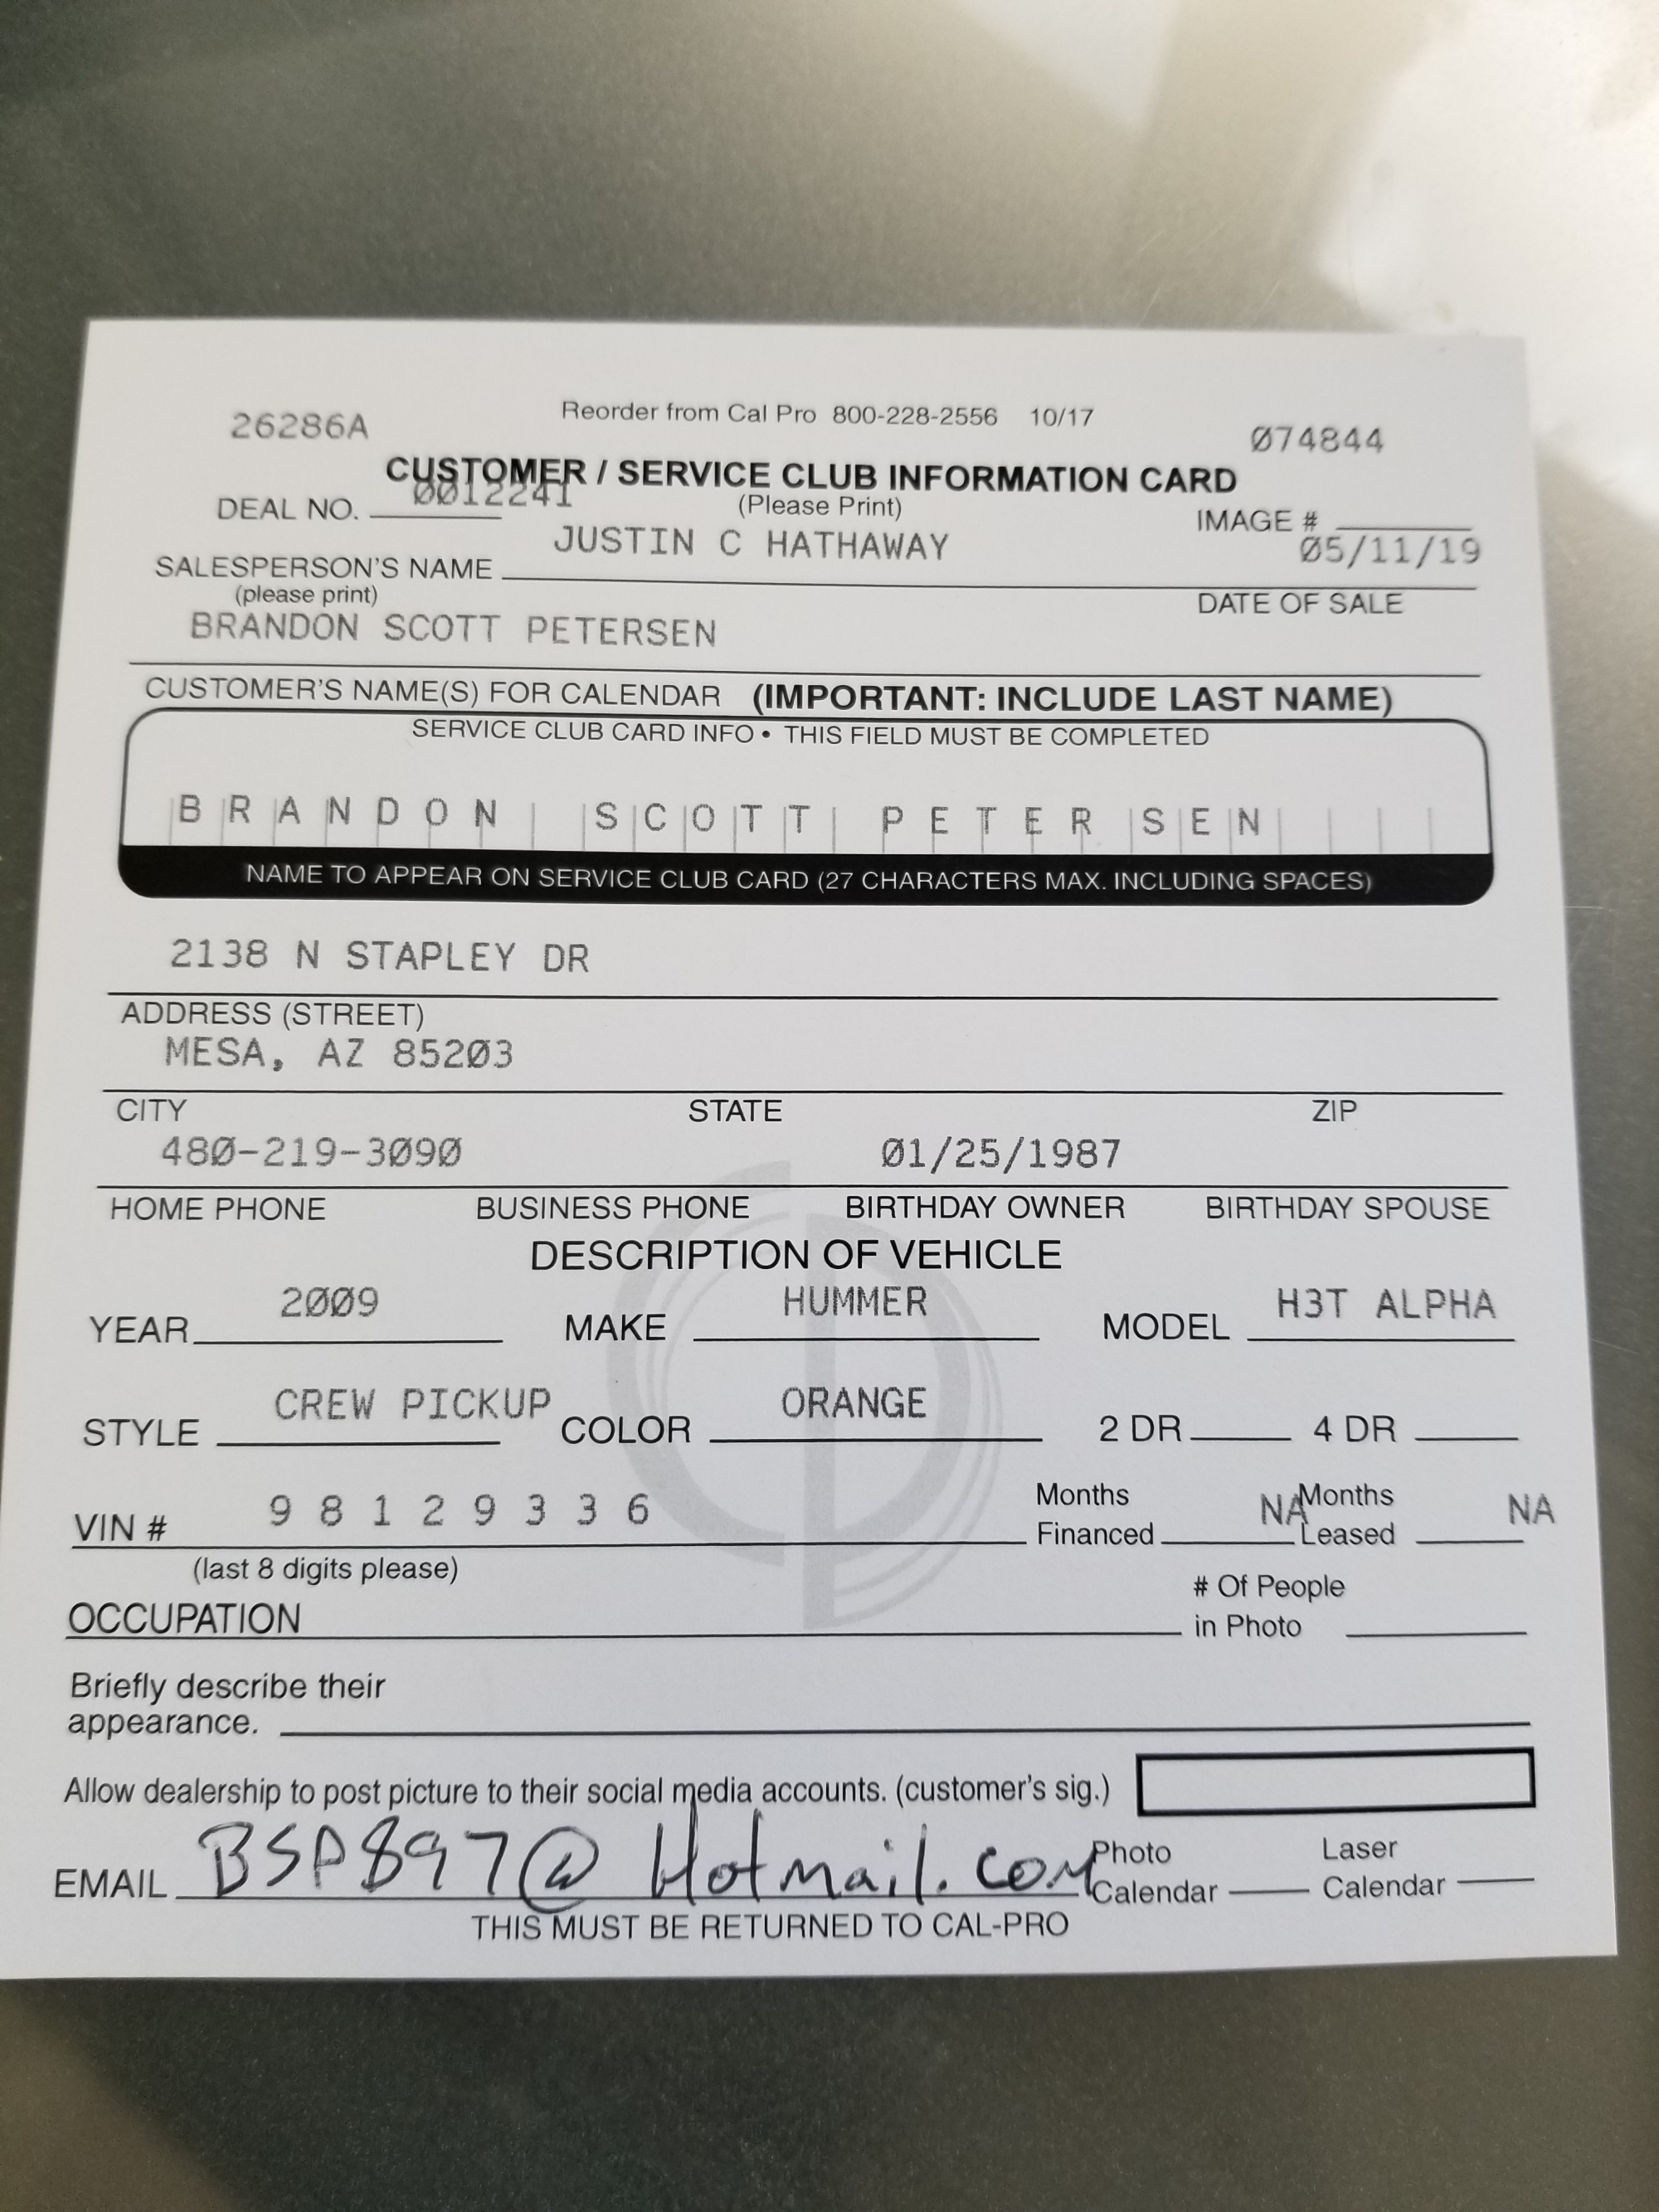 26286A Reorder from Cal Pro 800-228-2556 10/17 074844
CUSTOMER / SERVICE CLUB INFORMATION CARD
DEAL NO. 0012241 (Please Print) IMAGE #
SALESPERSON'S NAME JUSTIN C HATHAWAY 05/11/19
(please print) DATE OF SALE
BRANDON SCOTT PETERSEN
CUSTOMER'S NAME(S) FOR CALENDAR (IMPORTANT: INCLUDE LAST NAME)
SERVICE CLUB CARD INFO • THIS FIELD MUST BE COMPLETED
BRANDON SCOTT PETERSEN
NAME TO APPEAR ON SERVICE CLUB CARD (27 CHARACTERS MAX. INCLUDING SPACES)
2138 N STAPLEY DR
ADDRESS (STREET)
MESA, AZ 85203
CITY STATE ZIP
480-219-3090 01/25/1987
HOME PHONE BUSINESS PHONE BIRTHDAY OWNER BIRTHDAY SPOUSE
DESCRIPTION OF VEHICLE
YEAR 2009 MAKE HUMMER MODEL H3T ALPHA
STYLE CREW PICKUP COLOR ORANGE 2 DR 4 DR
VIN # 98129336 Months Financed NA Months Leased NA
(last 8 digits please)
OCCUPATION # Of People in Photo
Briefly describe their
appearance.
Allow dealership to post picture to their social media accounts. (customer's sig.)
EMAIL BSP897@Hotmail.com Photo Calendar Laser Calendar
THIS MUST BE RETURNED TO CAL-PRO